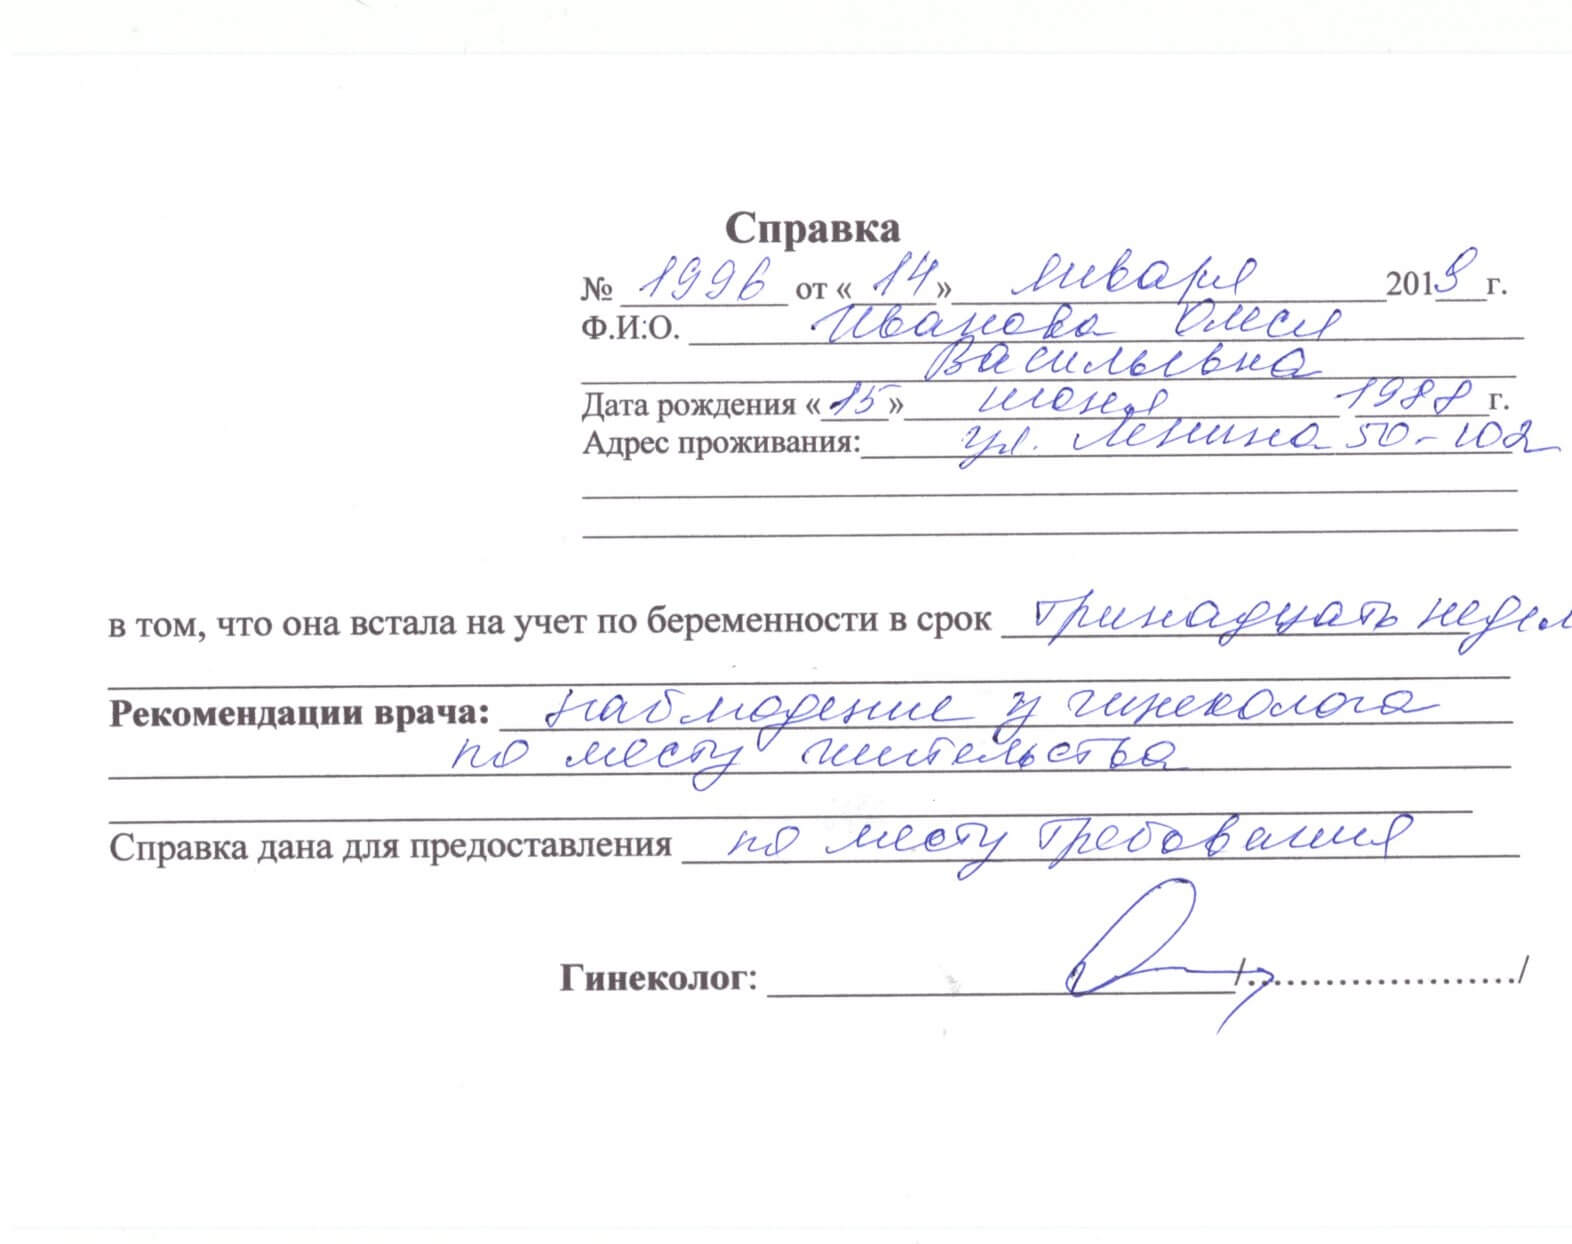 Справка
№ 1996 от « 14 » января 2019 г.
Ф.И.О. Иванова Олеся
Васильевна
Дата рождения « 15 » июня 1988 г.
Адрес проживания: ул. Ленина 50-102
в том, что она встала на учет по беременности в срок тринадцать недел
Рекомендации врача: наблюдение у гинеколога
по месту жительства
Справка дана для предоставления по месту требования
Гинеколог: /...................../